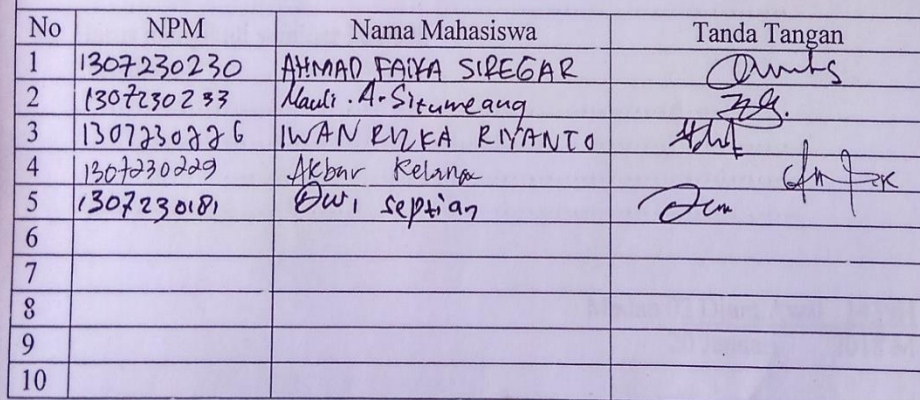 No NPM Nama Mahasiswa Tanda Tangan
1 1307230230 AHMAD FAIKA SIREGAR
2 1307230233 Mauli . A. Situmeang
3 1307230226 IWAN RIZKA RIYANTO
4 1307230229 Akbar Kelana
5 1307230181 Dwi septian
6
7
8
9
10